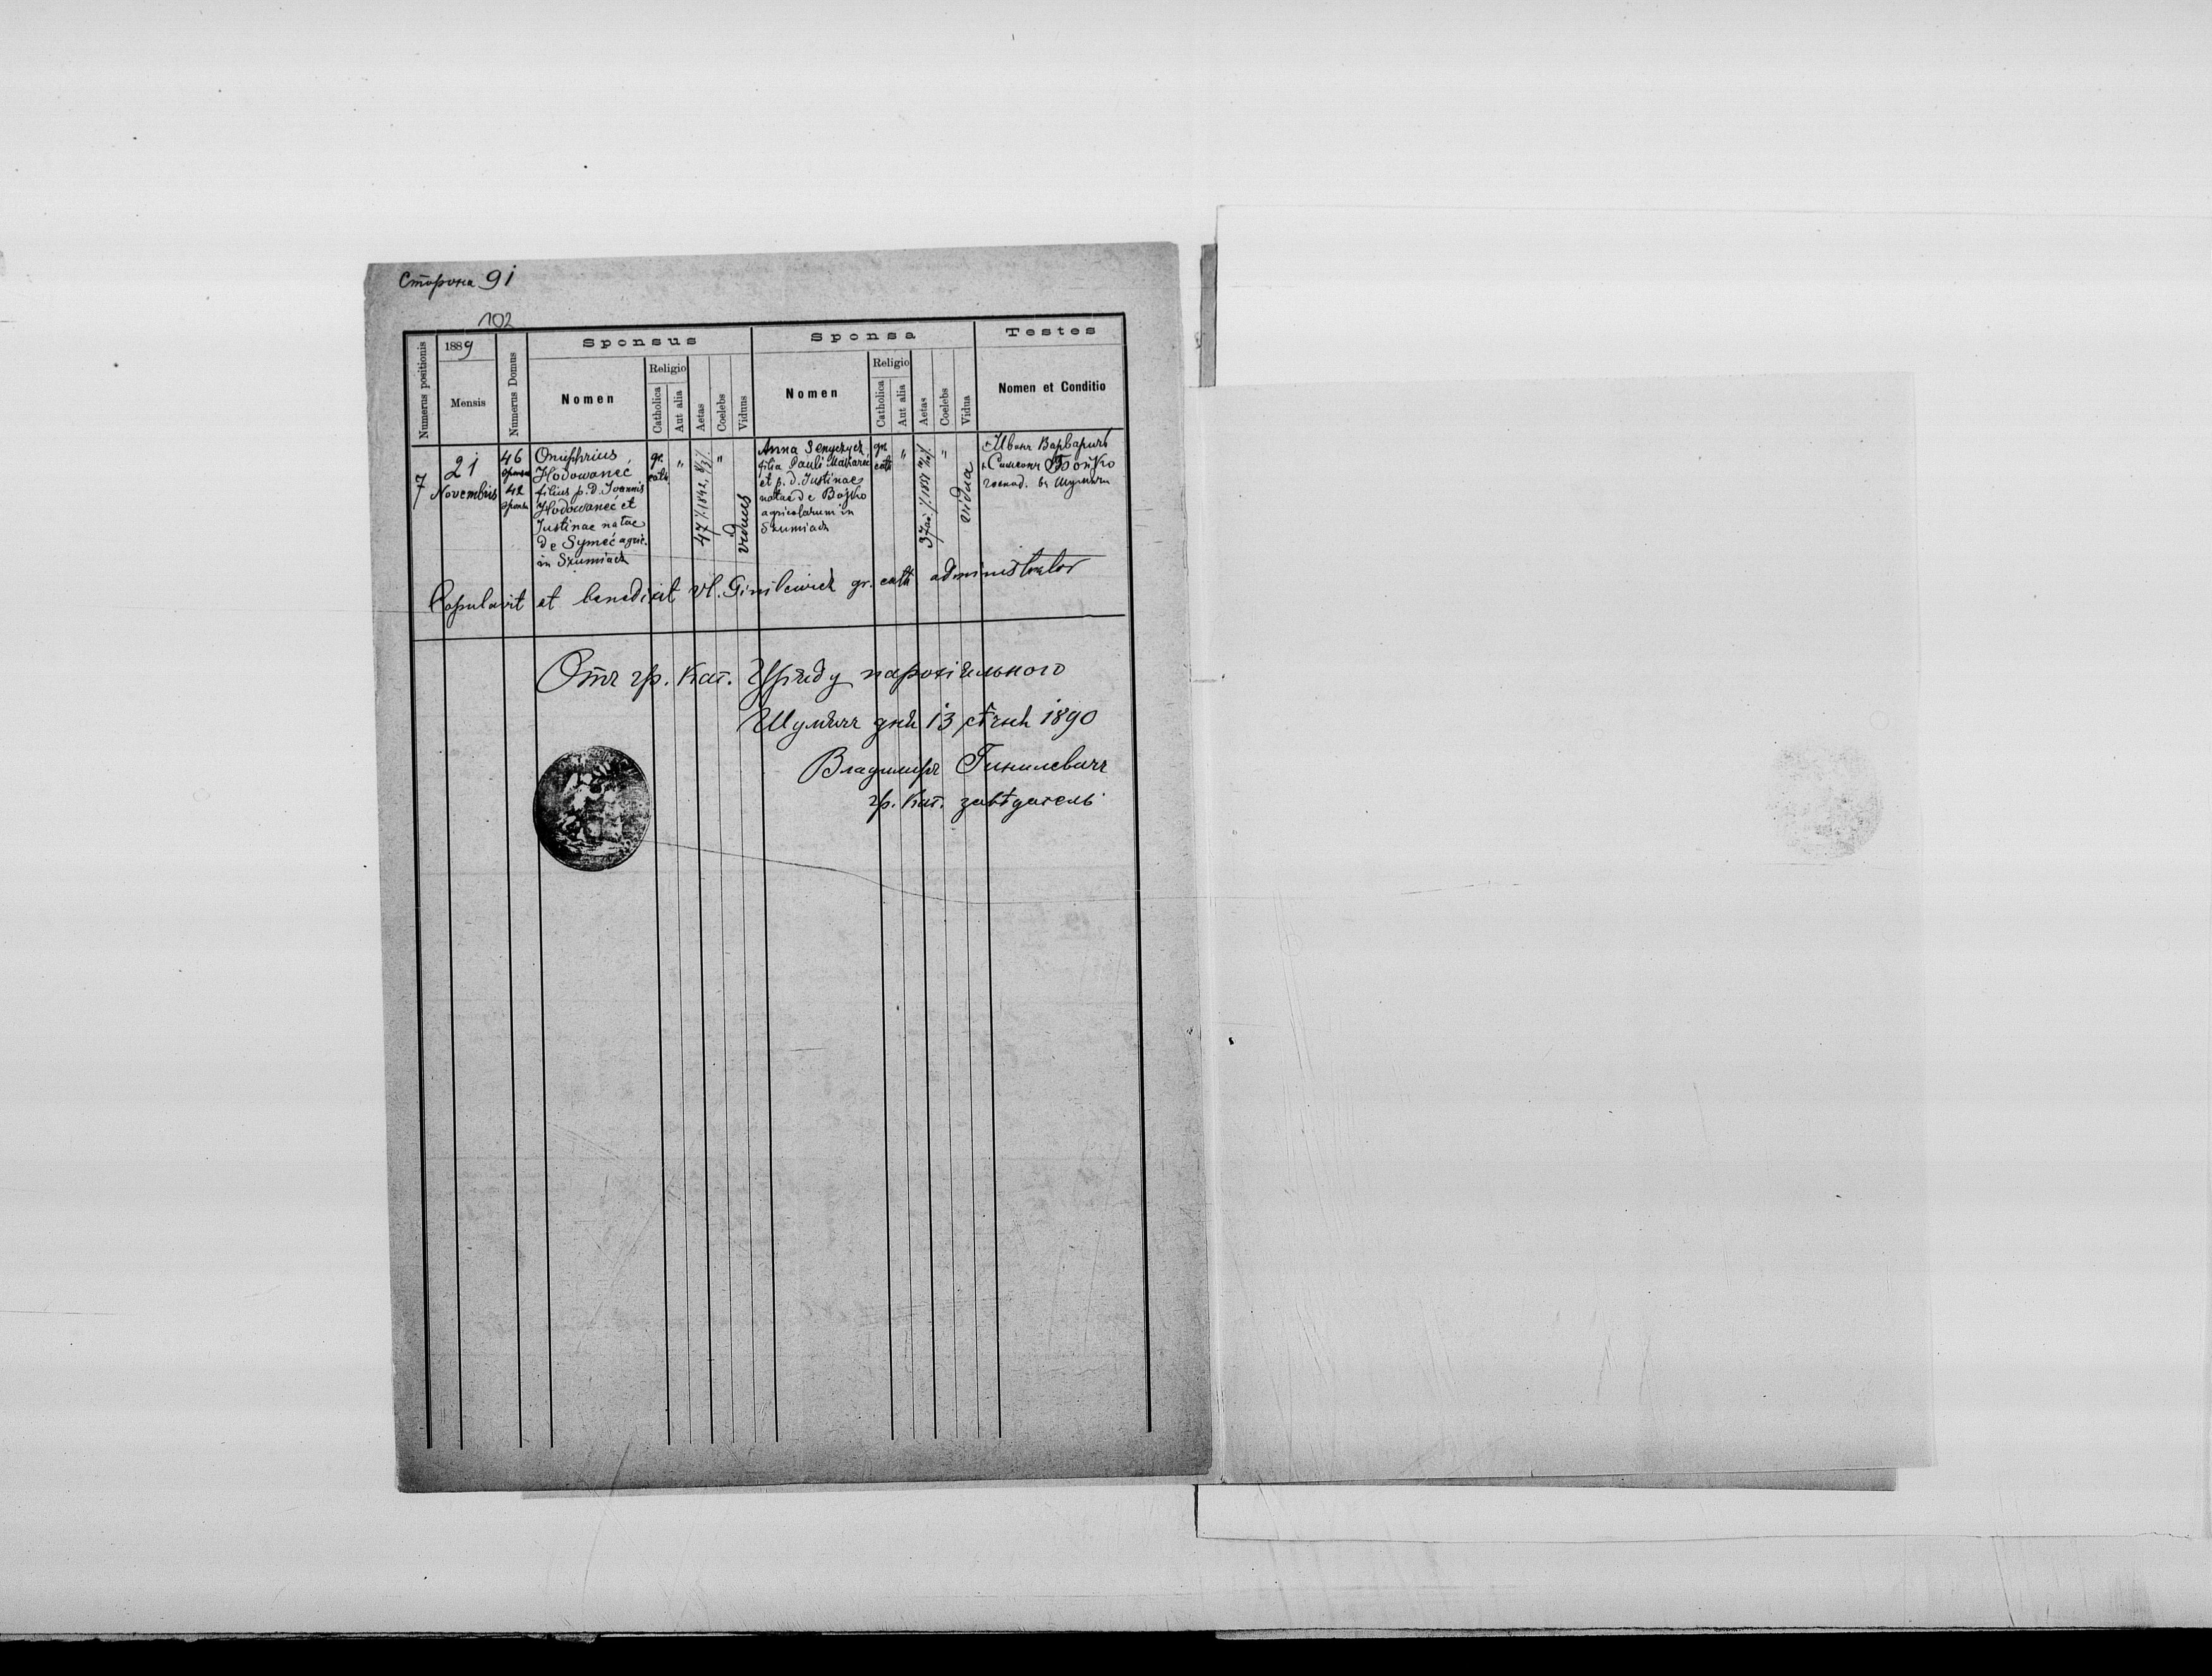 Сторона 91
102
Numerus positionis
1889
Mensis
Numerus Domus
Sponsus
Nomen
Religio
Catholica
Aut alia
Aetas
Coelebs
Viduus
Sponsa
Nomen
Religio
Catholica
Aut alia
Aetas
Coelebs
Vidua
Testes
Nomen et Conditio
7
21
Novembris
46
42
Onuphrius
Hodowaneć
filius p.d. Joannis
Hodowaneć et
Justinae natae
de Symeć agric.
in Szumiach
gr.
cath
"
47
1842
"
viduus
Anna
filia Pauli
et p. d. Justinae
natae de Bojko
agricolarum in
Szumiach
gr.
cath
"
37
"
vidua
+Иванъ Варваричъ
+Симеонъ Бойко
господ. въ Шумячи
Copulavit et benedixit Vl. Ginilewich gr. cath administrator
Отъ гр. кат. Уряду парохіяльного
Шумячъ дня 13 сѣчня 1890
Владимиръ Гинилевичъ
гр. кат. завѣдатель